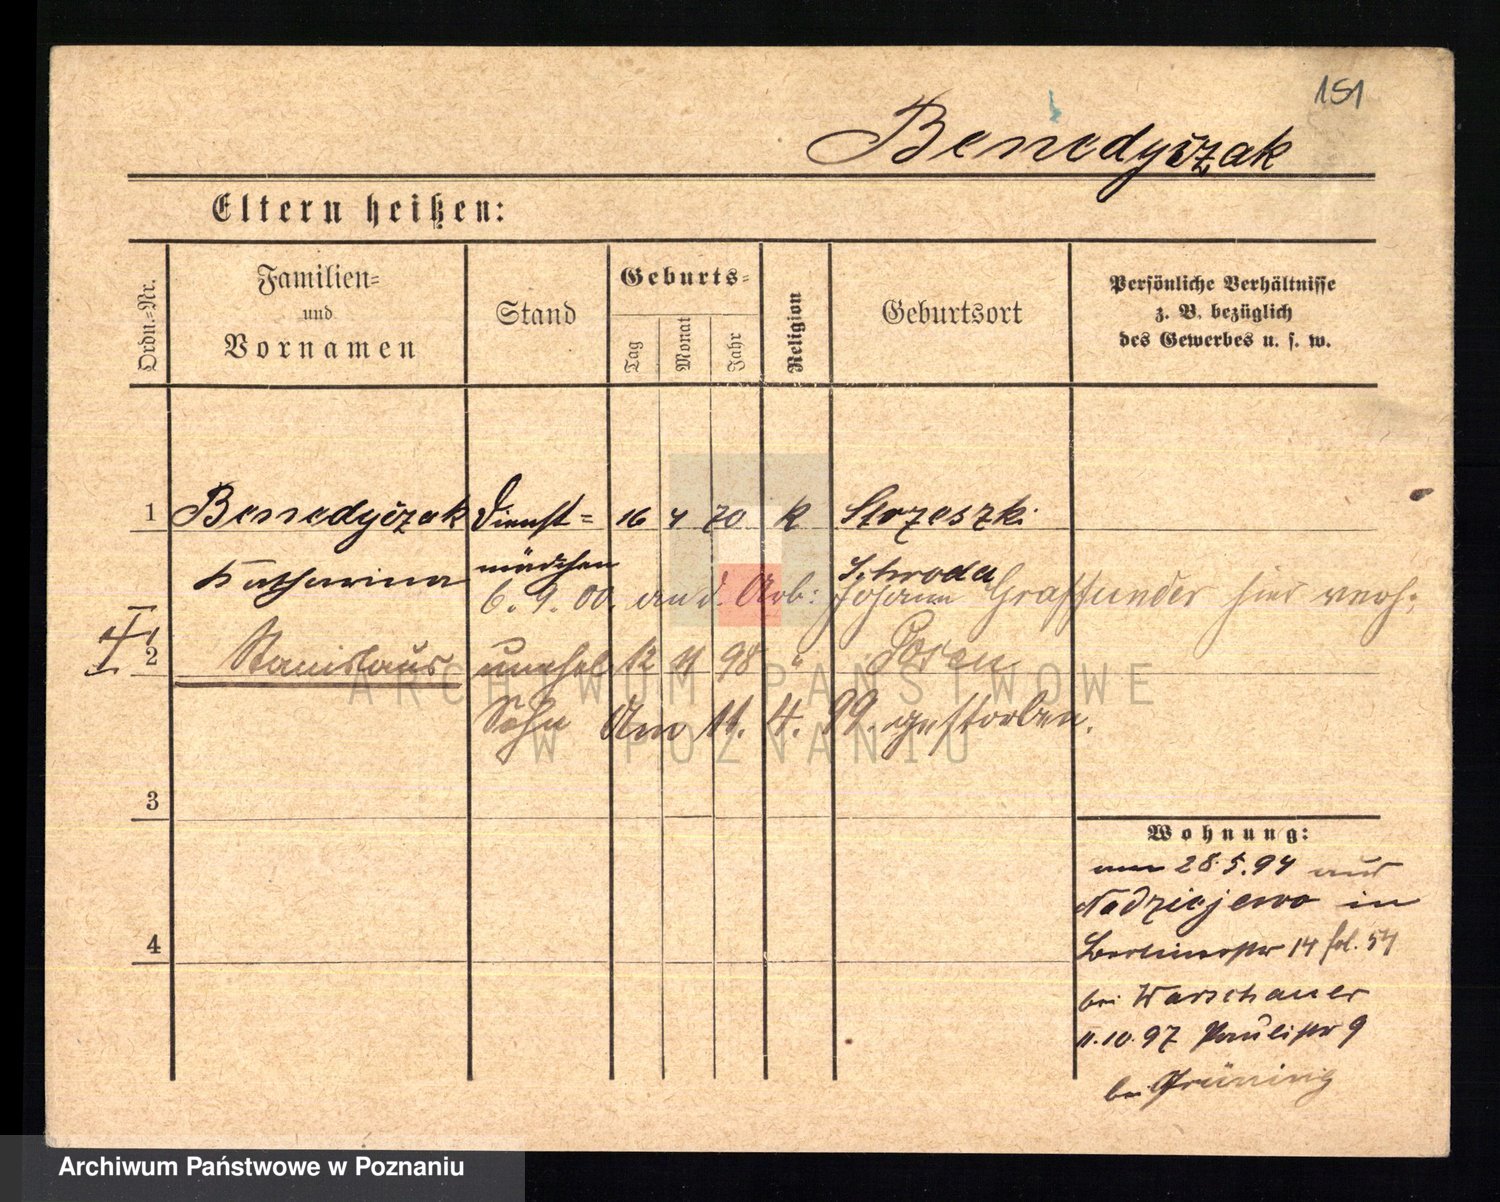 151
Benedyczak
Eltern heißen:
Ordn.=Nr.
Familien=
und
Vornamen
Stand
Geburts=
Tag
Monat
Jahr
Religion
Geburtsort
Persönliche Verhältnisse
z. B. bezüglich
des Gewerbes u. s. w.
1 Benedyczak Dienst= 16 4 70 k
Katharina mädchen Schroda
6. 9. 00. an d. Arb: Johann Graffunder hier verh:
2 Stanislaus unehel 12 98 " Posen
Sohn Am 11. 4. 99. gestorben.
3
4
Wohnung:
28.5.94 aus
Nadziejewo in
Berlinerstr 14 fol. 54
bei Warschauer
11.10.97 Paulistr 9
bei Grüning
ARCHIWUM PAŃSTWOWE
W POZNANIU
Archiwum Państwowe w Poznaniu